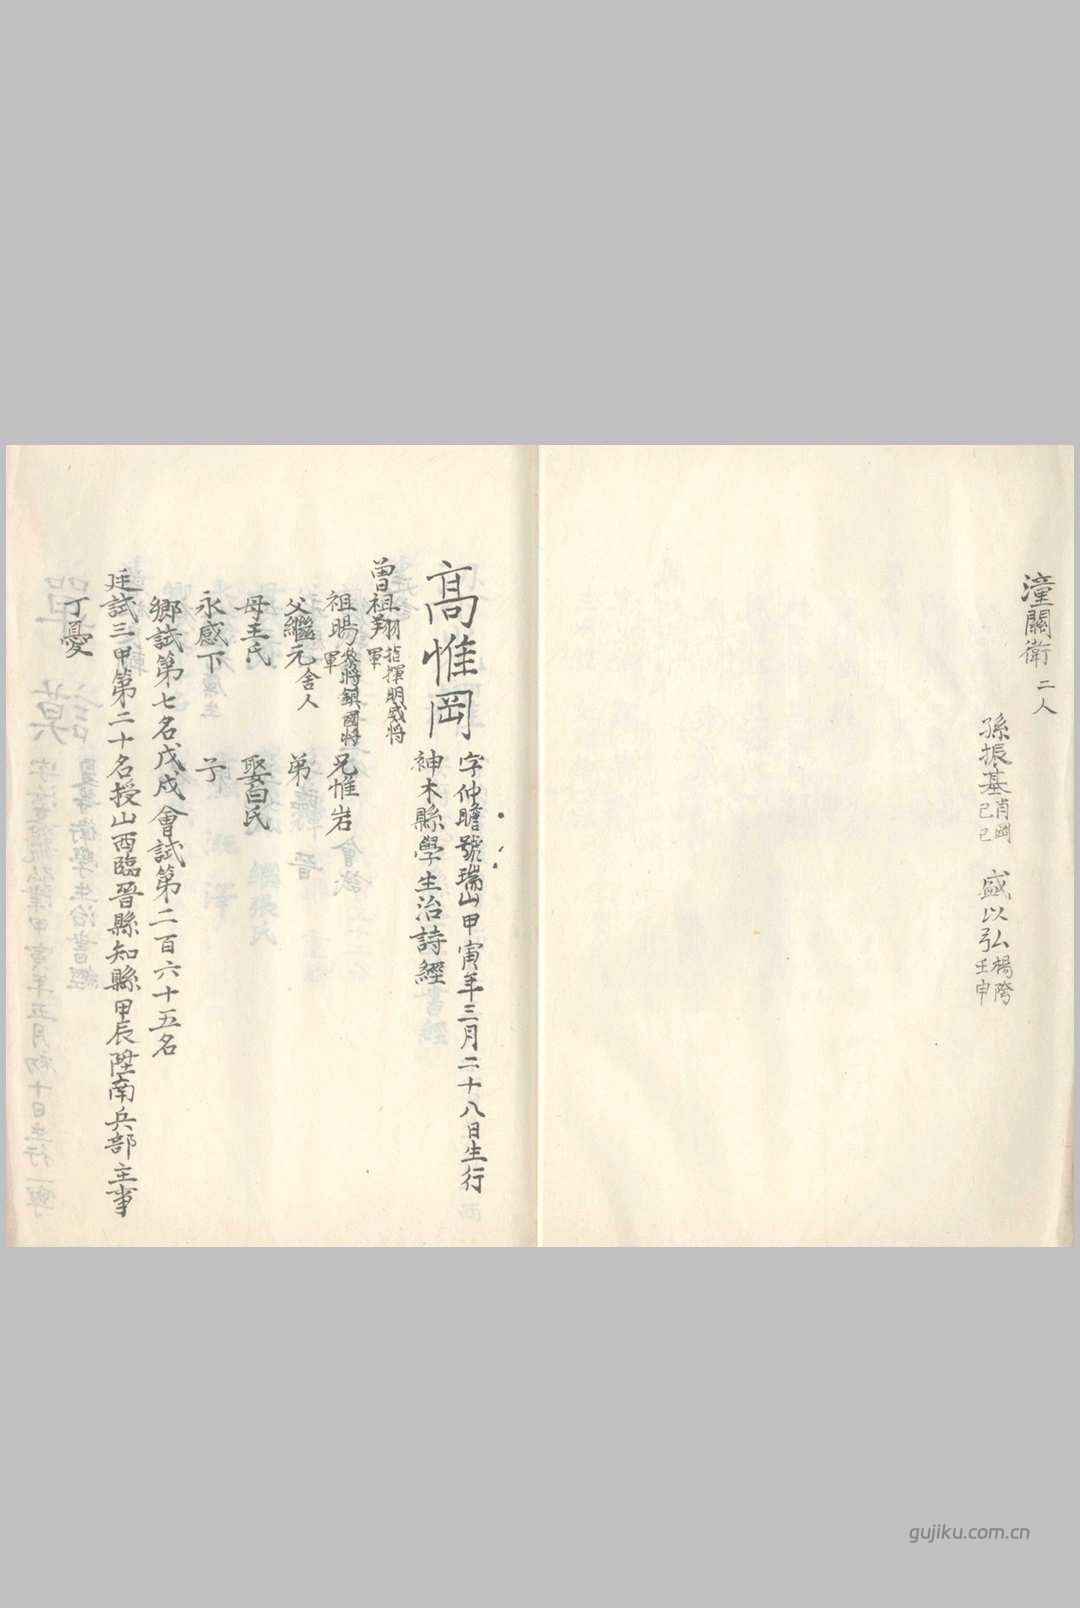 潼關衛 二人
孫振基 肖岡 己已 盛以弘 楊隂 壬申
高惟岡 字仲瞻號瑞山甲寅年三月二十八日生行
神木縣學生治詩經
曾祖翔 指揮明威將軍
祖暘 叅將鎮國將軍 兄惟岩
父繼元 舍人 弟
母王氏 娶白氏
永感下 子
鄉試第七名戊戌會試第二百六十五名
廷試三甲第二十名授山西臨晉縣知縣甲辰陞南兵部主事
丁憂
gujiku.com.cn